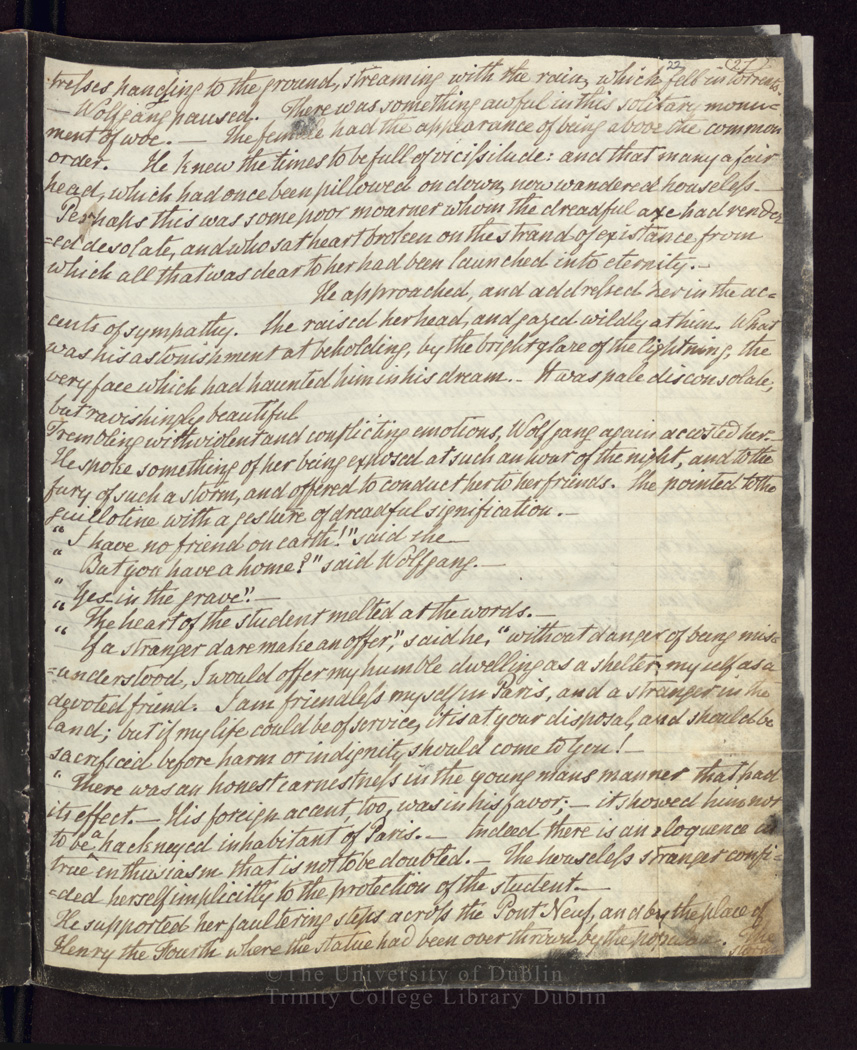 22 (27)
tresses hanging to the ground, streaming with the rain, which fell in torrents.
— Wolfgang paused. There was something awful in this solitary monu-
ment of woe. — The female had the appearance of being above the common
order. He knew the times to be full of vicissitude: and that many a fair
head, which had once been pillowed on down, now wandered houseless. —
Perhaps this was some poor moarner whom the dreadful axe had render
=ed desolate, and who sat heart broken on the strand of existance, from
which all that was dear to her had been launched into eternity. —
He approached, and addressed her in the ac=
cents of sympathy. She raised her head, and gazed wildly at him. What
was his astonishment at beholding, by the bright glare of the lightning, the
very face which had haunted him in his dream. — It was pale disconsolate,
but ravishingly beautiful
Trembling with violent and conflicting emotions, Wolfgang again accosted her. —
He spoke something of her being exposed at such an hour of the night, and to the
fury of such a storm, and offered to conduct her to her friends. She pointed to the
guillotine with a gesture of dreadful signification. —
" I have no friend on earth!" said she —
" But you have a home?" said Wolfgang. —
" Yes — in the grave". —
" The heart of the student melted at the words. —
" If a stranger dare make an offer," said he, "without danger of being mis=
=understood, I would offer my humble dwelling as a shelter; myself as a
devoted friend. I am friendless myself in Paris, and a stranger in the
land; but if my life could be of service, it is at your disposal, and should be
sacrificed before harm or indignity should come to you! —
" There was an honest earnestness in the young mans manner that had
its effect. — His foreign accent, too, was in his favor; — it showed him not
to be a hackneyed inhabitant of Paris. — Indeed there is an eloquence in
true enthusiasm that is not to be doubted. — The houseless stranger confi=
=ded herself implicitly to the protection of the student. —
He supported her faultering steps across the Pont Neuf, and by the place of
Henry the Fourth where the statue had been overthrown by the populace. The
storm
©The University of Dublin
Trinity College Library Dublin